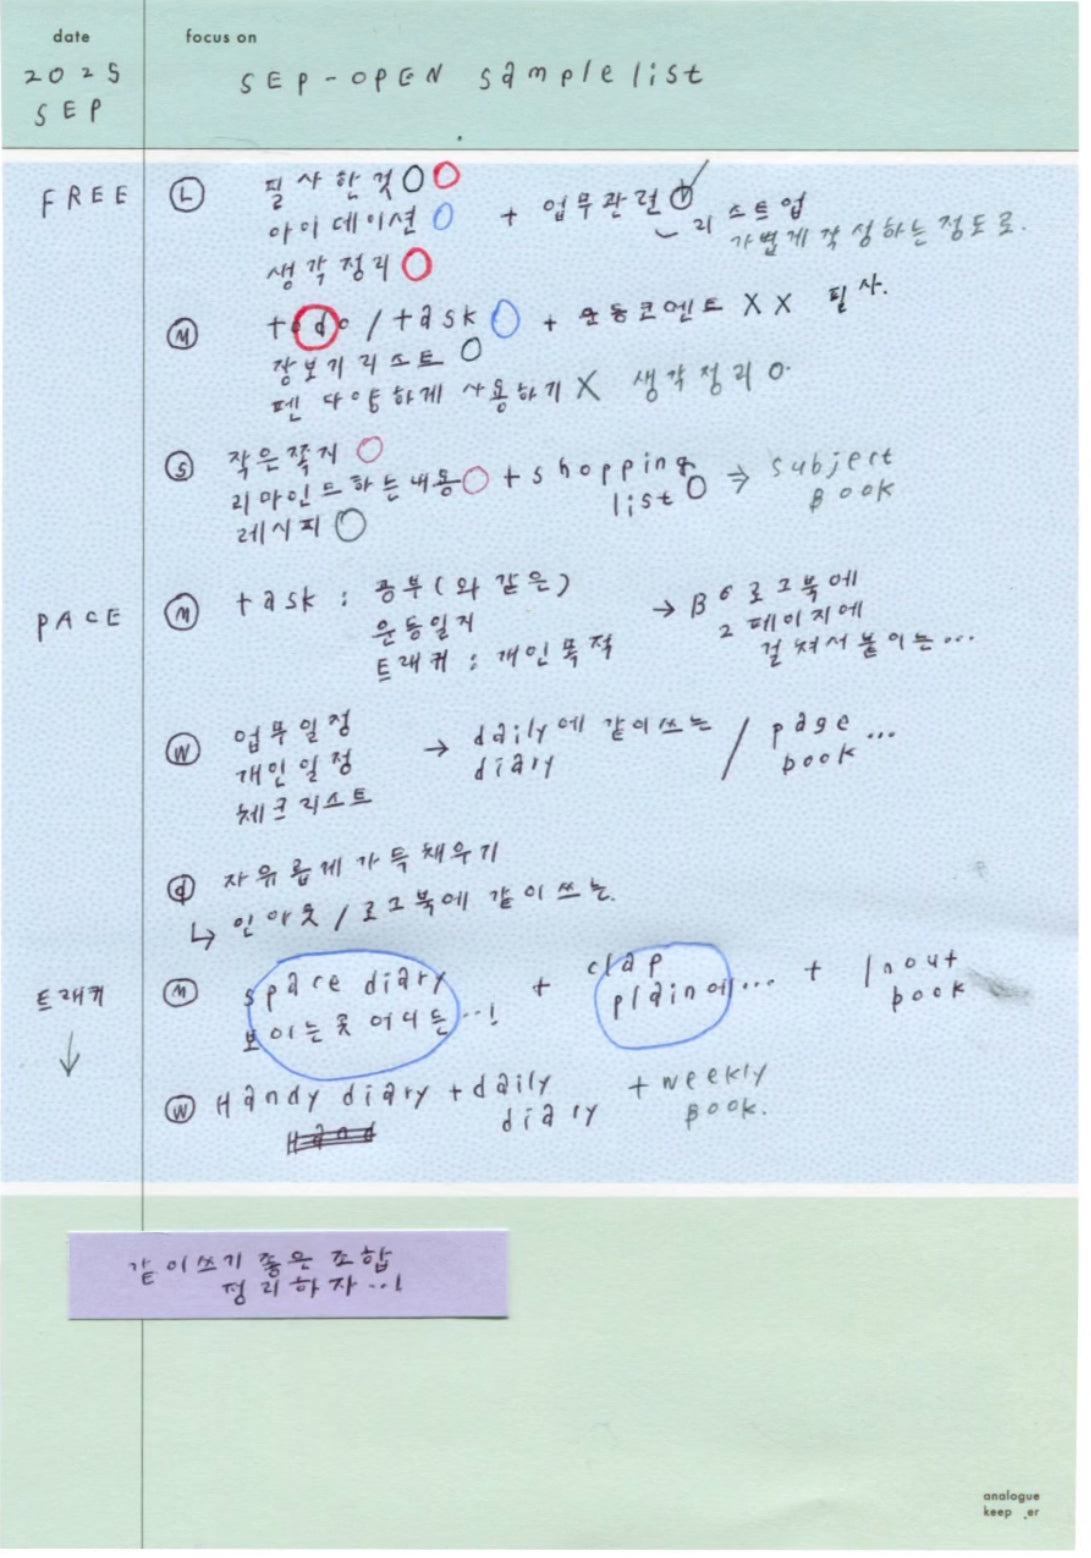 date
focus on
2025
SEP
SEP-OPEN sample list
FREE
L
필사한것
아이데이션
생각정리
+ 업무관련
리스트업
가볍게 작성하는 정도로.
M
todo / task + 운동코멘트 X X 필사.
장보기리스트
펜 다양하게 사용하기 X 생각정리
S
작은쪽지
리마인드하는내용 + shopping
list ⇒ subject
BOOK
레시피
PACE
M
task : 공부(와 같은)
운동일지
트래커 : 개인목적
→ B6로그북에
2페이지에
걸쳐서붙이는...
W
업무일정
개인일정
체크리스트
→ daily에 같이쓰는 / page ...
diary
book
d
자유롭게 가득채우기
↳ 인아웃 / 로그북에 같이쓰는.
트래커
↓
M
space diary + clap + Inout
보이는곳 어디든...! plain에... book
W
Handy diary + daily + weekly
diary BOOK.
Hand
같이쓰기 좋은 조합
정리하자...!
analogue
keep_er